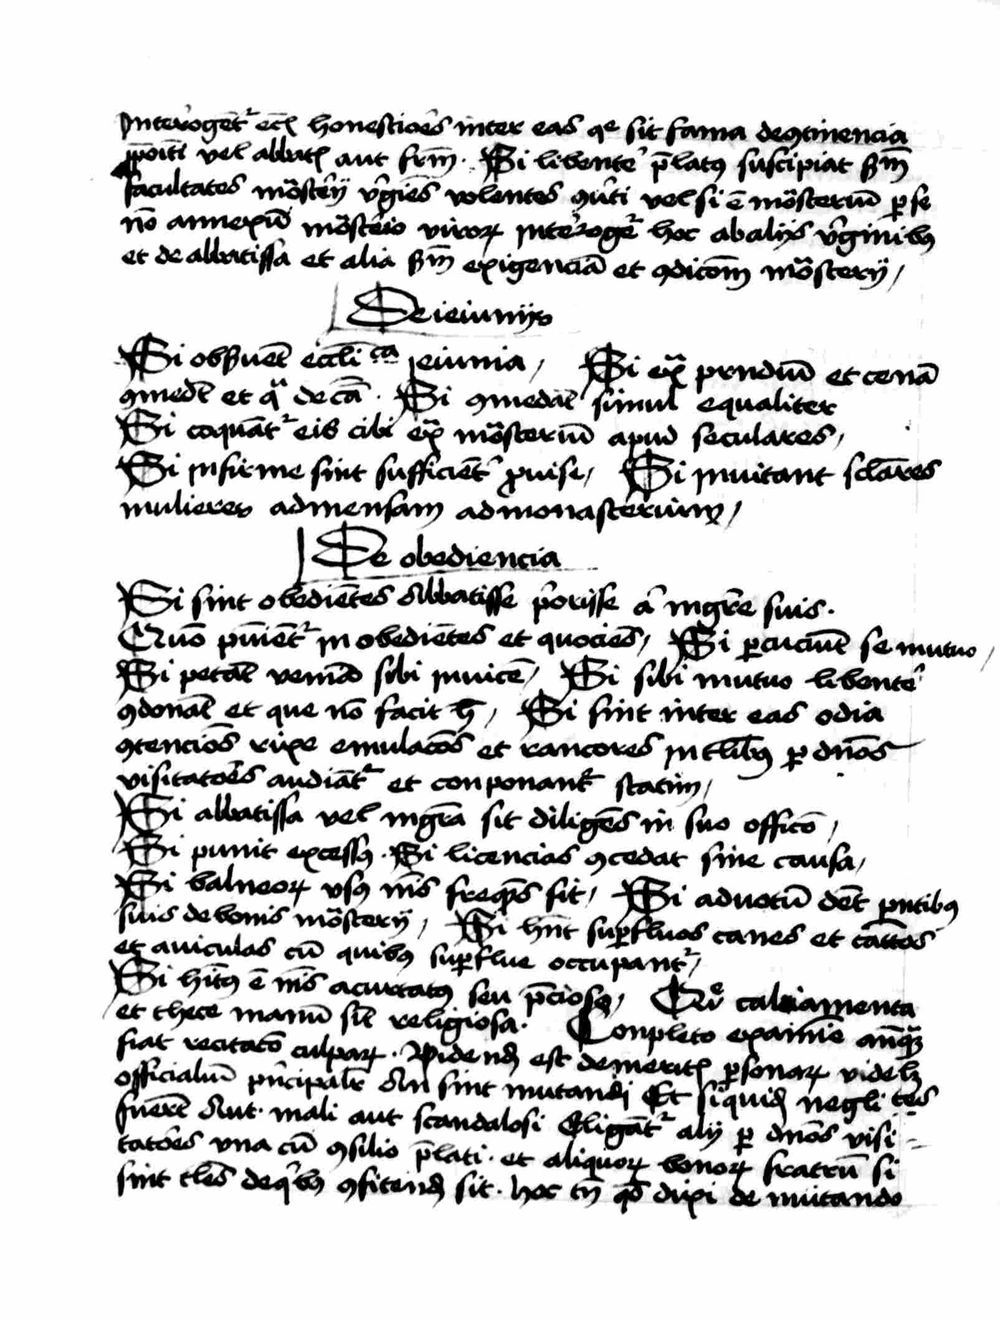 Interoget᷑ ecia honestiores inter eas q̃ sit fama de ꝯtinencia
p̃positi vel abbatis aut frm̃. Si libent̾ p̃latus suscipiat sm̃
facultates mõsterij v̾gines volentes ꝯuerti vel si ẽ mõsteriũ ꝑ se
nõ annexũ mõsterio virorꝝ interoget᷑ hoc ab alijs v̾ginibus
et de abbatissa et alia sm̃ exigenciã et ꝯdicõm mõsterij /
De ieiunijs
Si obseruẽt eccli ca ieiunia / Si ext̾ prndiũ et cenã
ꝯmedẽt et qͣ de cã. Si ꝯmedãt simul equaliter
Si coquãt᷑ eis cibi ext̾ mõsteriũ apud seculares /
Si infirme sint sufficient̾ ꝓuise / Si inuitant sclãres
mulieres ad mensam ad monasterium /
De obediencia
Si sint obediẽtes abbatisse p̾orisse ac mgr̃e suis.
Quõ puniẽt᷑ inobediẽtes et quociẽs / Si ꝑcuciũt se mutuo /
Si petãt veniã sibi inuicẽ / Si sibi mutuo libent̾
ꝯdonãt et que nõ facit h̾ / Si sint inter eas odia
ꝯtenciões rixe emulacões et rancores in tlibus ꝑ dños
visitatores audiãt᷑ et conponant᷑ statim /
Si abbatissa vel mgr̃a sit diligẽs in suo officio /
Si punit excessus. Si licencias ꝯcedat sine causa /
Si balneorꝝ vsus nis freqñs sit / Si aduotũ dẽt ꝑntibus
suis de bonis mõsterij / Si hñt suꝑfluos canes et cattos
et auiculas cũ quibus suꝑflue occupant᷑ /
Si hitus ẽ nis acurtatus seu p̃ciosus / Itẽ calciamenta
et thece manuũ sint religiosa. Conpleto examine anq̃ꝫ
fiat recitatõ culparꝝ. Vidend est de meritis ꝑsonarꝝ videlꝫ
officialiũ p̾ncipaliũ an sint mutandi Et siquid negligẽtes
fuerĩt aut mali aut scandalosi Eligãt᷑ alij ꝑ dños visi-
tatores vna cũ ꝯsilio p̃lati. et aliquorꝝ bonorꝝ fratrũ si
sint tles de quibus ꝯfitend sit. hoc tñ qd dixi de mutando